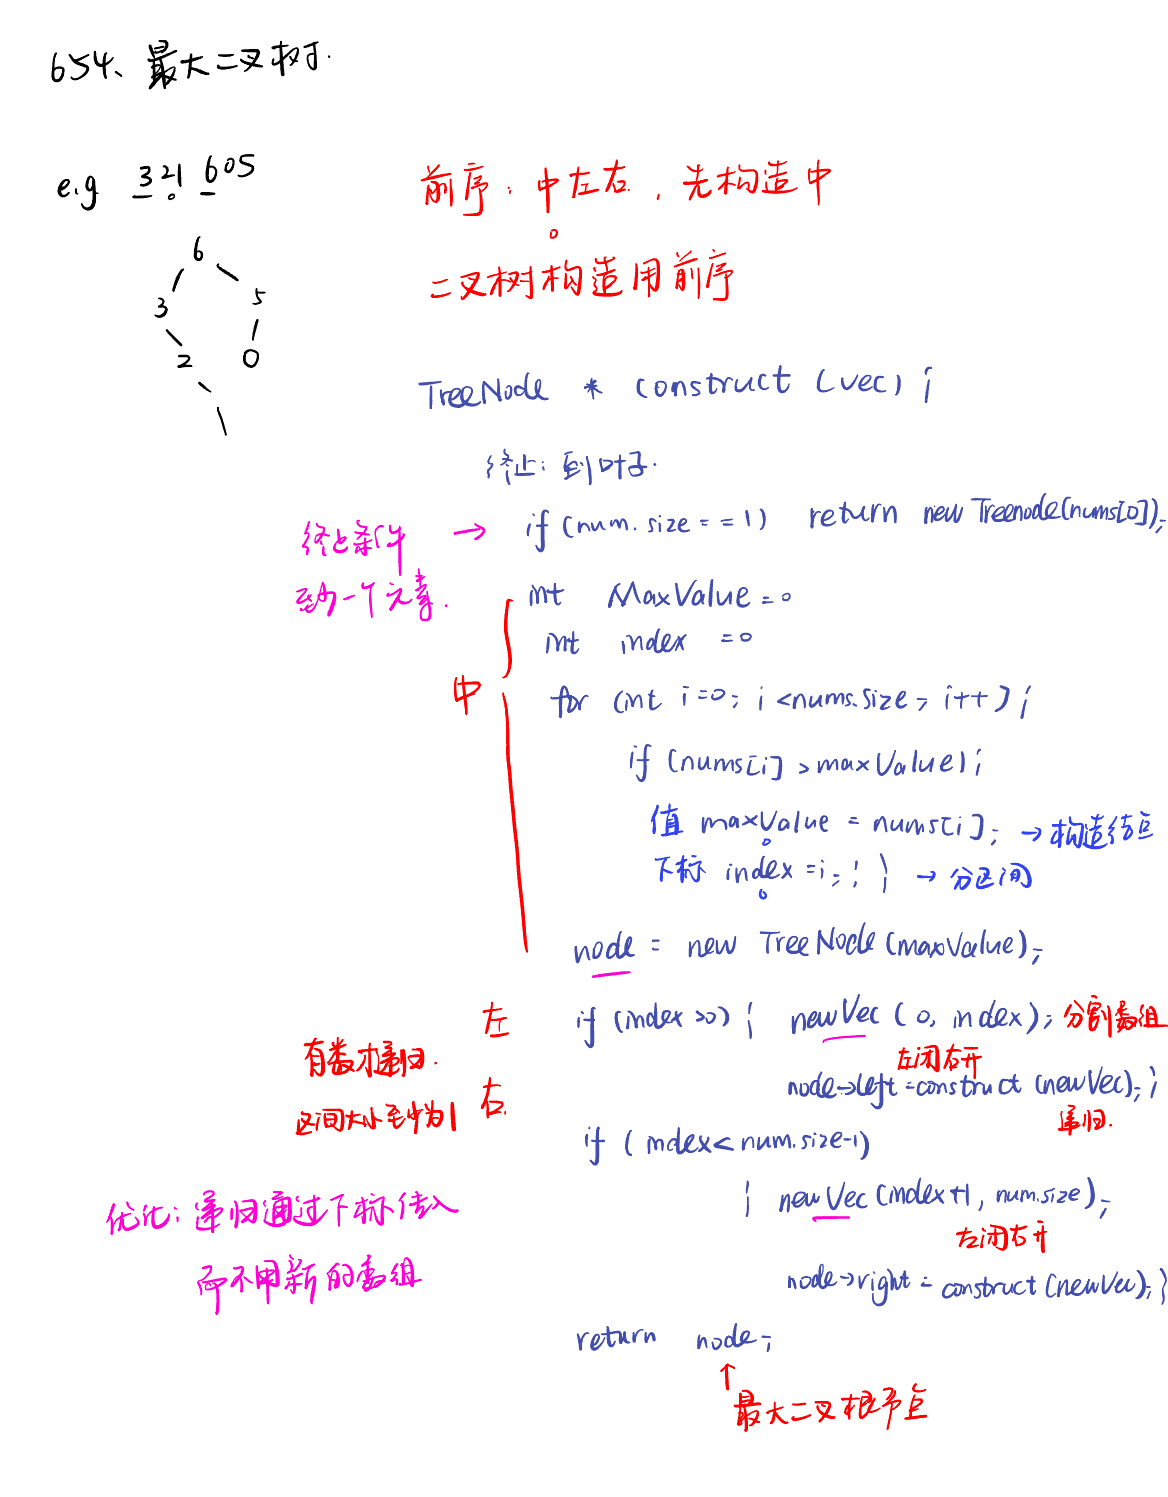 654、最大二叉树.
e.g 321605
前序：中左右，先构造中
二叉树构造用前序
6
3 5
2 0
1
TreeNode * construct (vec) {
终止：到叶子.
终止条件 → if (num.size == 1) return new Treenode(nums[0]);
到一个元素.
int MaxValue = 0
int index = 0
中
for (int i=0; i<nums.size; i++) {
if (nums[i] > maxValue) {
值 maxValue = nums[i]; → 构造结点
下标 index = i; } } → 分区间
node = new TreeNode(maxValue);
左 if (index >0) { newVec (0, index); 分割数组
左闭右开
有数才递归.
node->left = construct (newVec); }
右
区间大小至少为1
递归.
if ( index < num.size-1)
{ newVec (index+1, num.size);
左闭右开
优化：递归通过下标传入
而不用新的数组
node->right = construct (newVec); }
return node;
↑
最大二叉根节点